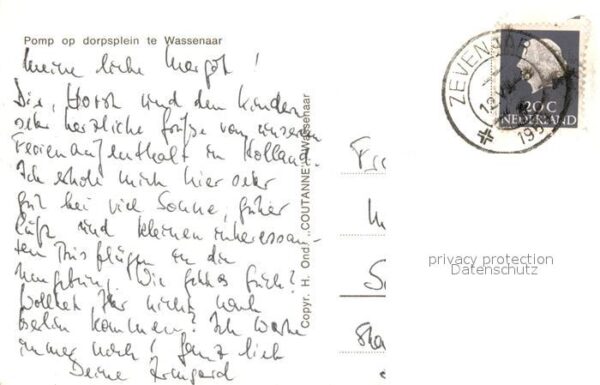 Pomp op dorpsplein te Wassenaar
Meine liebe Margot!
Dir, Horst und den Kindern
sehr herzliche Grüße von unserem
Ferienaufenthalt in Holland.
Ich erhole mich hier sehr
gut bei viel Sonne, guter
Luft und kleinen interessan-
ten Ausflügen in die
Umgebung. Wie geht es Euch?
Wolltet Ihr nicht nach
Berlin kommen? Ich warte
immer noch! Ganz lieb
Deine Irmgard
Copyr. H. Ond. „COUTANNE" Wassenaar
ZEVENAAR
20C
NEDERLAND
privacy protection
Datenschutz